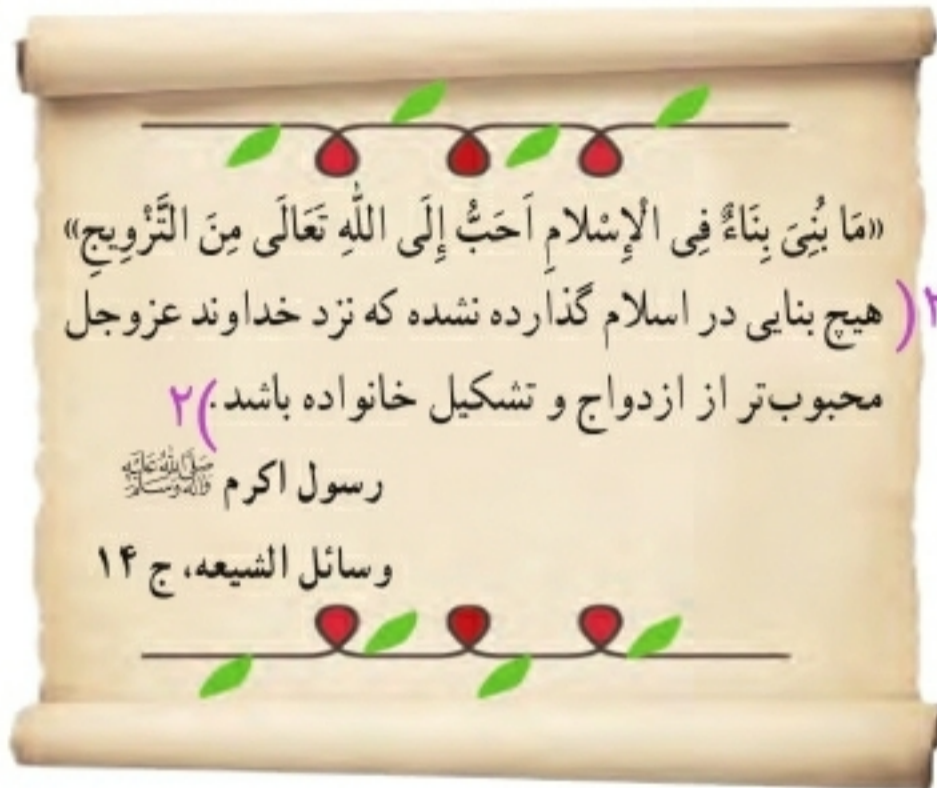 «مَا بُنِیَ بِنَاءٌ فِی الْإِسْلامِ اَحَبُّ إِلَی اللّٰهِ تَعَالَی مِنَ التَّزْوِیجِ»
۲( هیچ بنایی در اسلام گذارده نشده که نزد خداوند عزوجل
محبوب‌تر از ازدواج و تشکیل خانواده باشد.)۲
رسول اکرم ﷺ
وسائل الشیعه، ج ۱۴